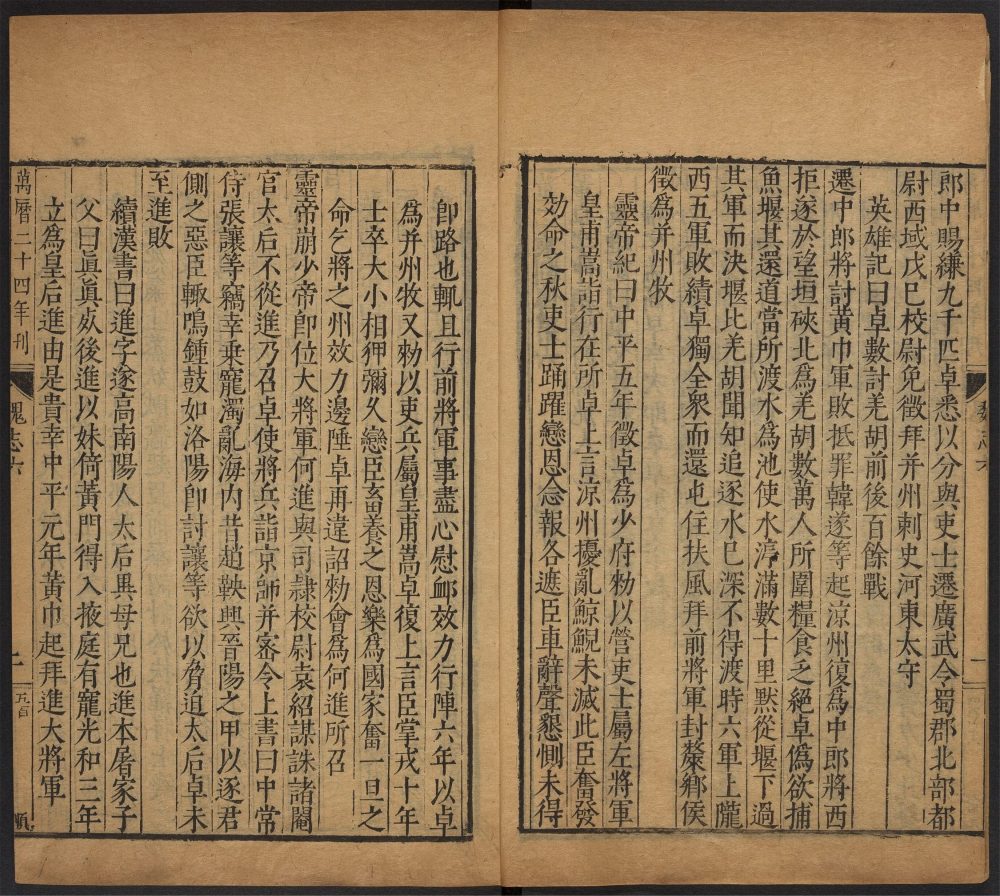 郎中賜縑九千匹卓悉以分與吏士遷廣武令蜀郡北部都
尉西域戊巳校尉免徵拜并州刺史河東太守
英雄記曰卓數討羌胡前後百餘戰
遷中郎將討黃巾軍敗抵罪韓遂等起涼州復爲中郎將西
拒遂於望垣硤北爲羌胡數萬人所圍糧食乏絕卓僞欲捕
魚堰其還道當所渡水爲池使水渟滿數十里默從堰下過
其軍而決堰比羌胡聞知追逐水巳深不得渡時六軍上隴
西五軍敗績卓獨全衆而還屯住扶風拜前將軍封斄鄉侯
徵爲并州牧
靈帝紀曰中平五年徵卓爲少府勑以營吏士屬左將軍
皇甫嵩詣行在所卓上言涼州擾亂鯨鯢未滅此臣奮發
効命之秋吏士踊躍戀恩念報各遮臣車辭聲懇惻未得
魏志六
卽路也輒且行前將軍事盡心慰卹效力行陣六年以卓
爲并州牧又勑以吏兵屬皇甫嵩卓復上言臣掌戎十年
士卒大小相狎彌久戀臣畜養之恩樂爲國家奮一旦之
命乞將之州效力邊陲卓再違詔勑會爲何進所召
靈帝崩少帝卽位大將軍何進與司隷校尉袁紹謀誅諸閹
官太后不從進乃召卓使將兵詣京師并密令上書曰中常
侍張讓等竊幸乗寵濁亂海內昔趙鞅興晉陽之甲以逐君
側之惡臣輒鳴鍾鼓如洛陽卽討讓等欲以脅迫太后卓未
至進敗
續漢書曰進字遂高南陽人太后異母兄也進本屠家子
父曰眞眞死後進以妹倚黃門得入掖庭有寵光和三年
立爲皇后進由是貴幸中平元年黃巾起拜進大將軍
萬曆二十四年刊
魏志六
二
五百
順